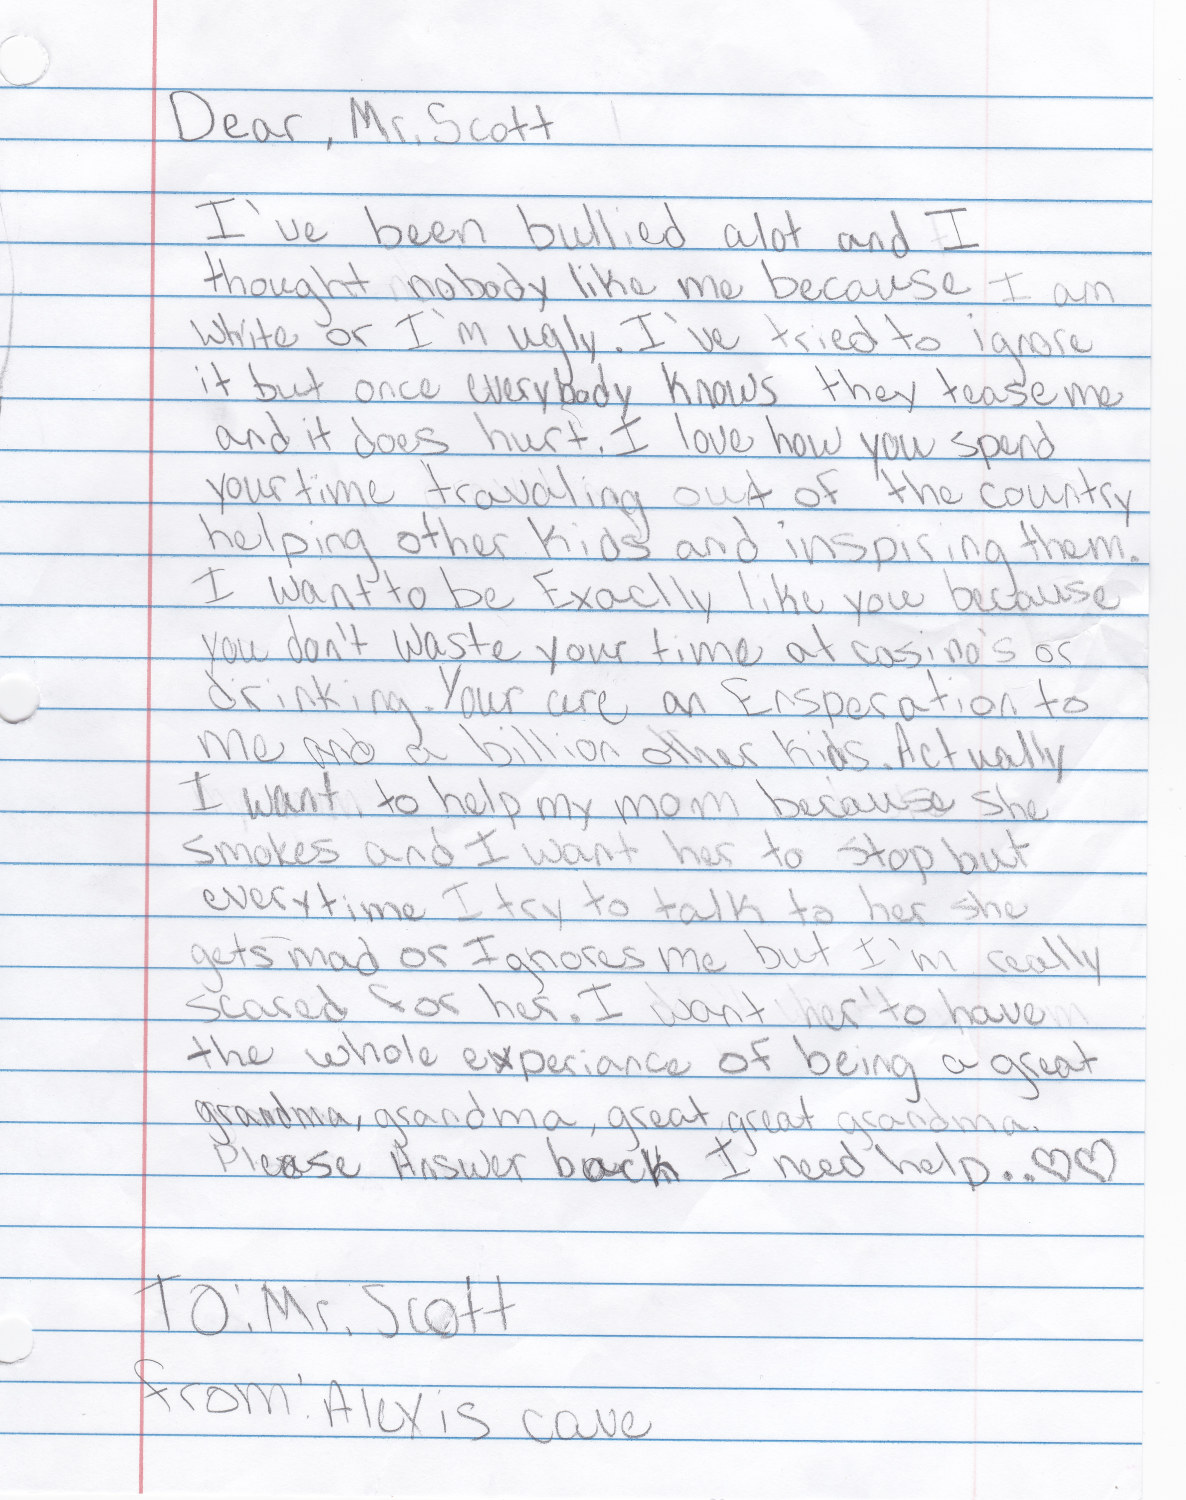 Dear, Mr. Scott
I've been bullied alot and I
thought nobody like me because I am
white or I'm ugly. I've tried to ignore
it but once everybody knows they tease me
and it does hurt. I love how you spend
your time travaling out of the country
helping other kids and inspiring them.
I want to be Exaclly like you because
you don't waste your time at casino's or
drinking. Your are an Ensperation to
me and a billion other kids. Actually
I want to help my mom because she
smokes and I want her to stop but
everytime I try to talk to her she
gets mad or Ignores me but I'm really
scared for her. I want her to have
the whole experiance of being a great
grandma, grandma, great great grandma.
Please Answer back I need help..♡♡
TO: Mr. Scott
from: Alexis cave